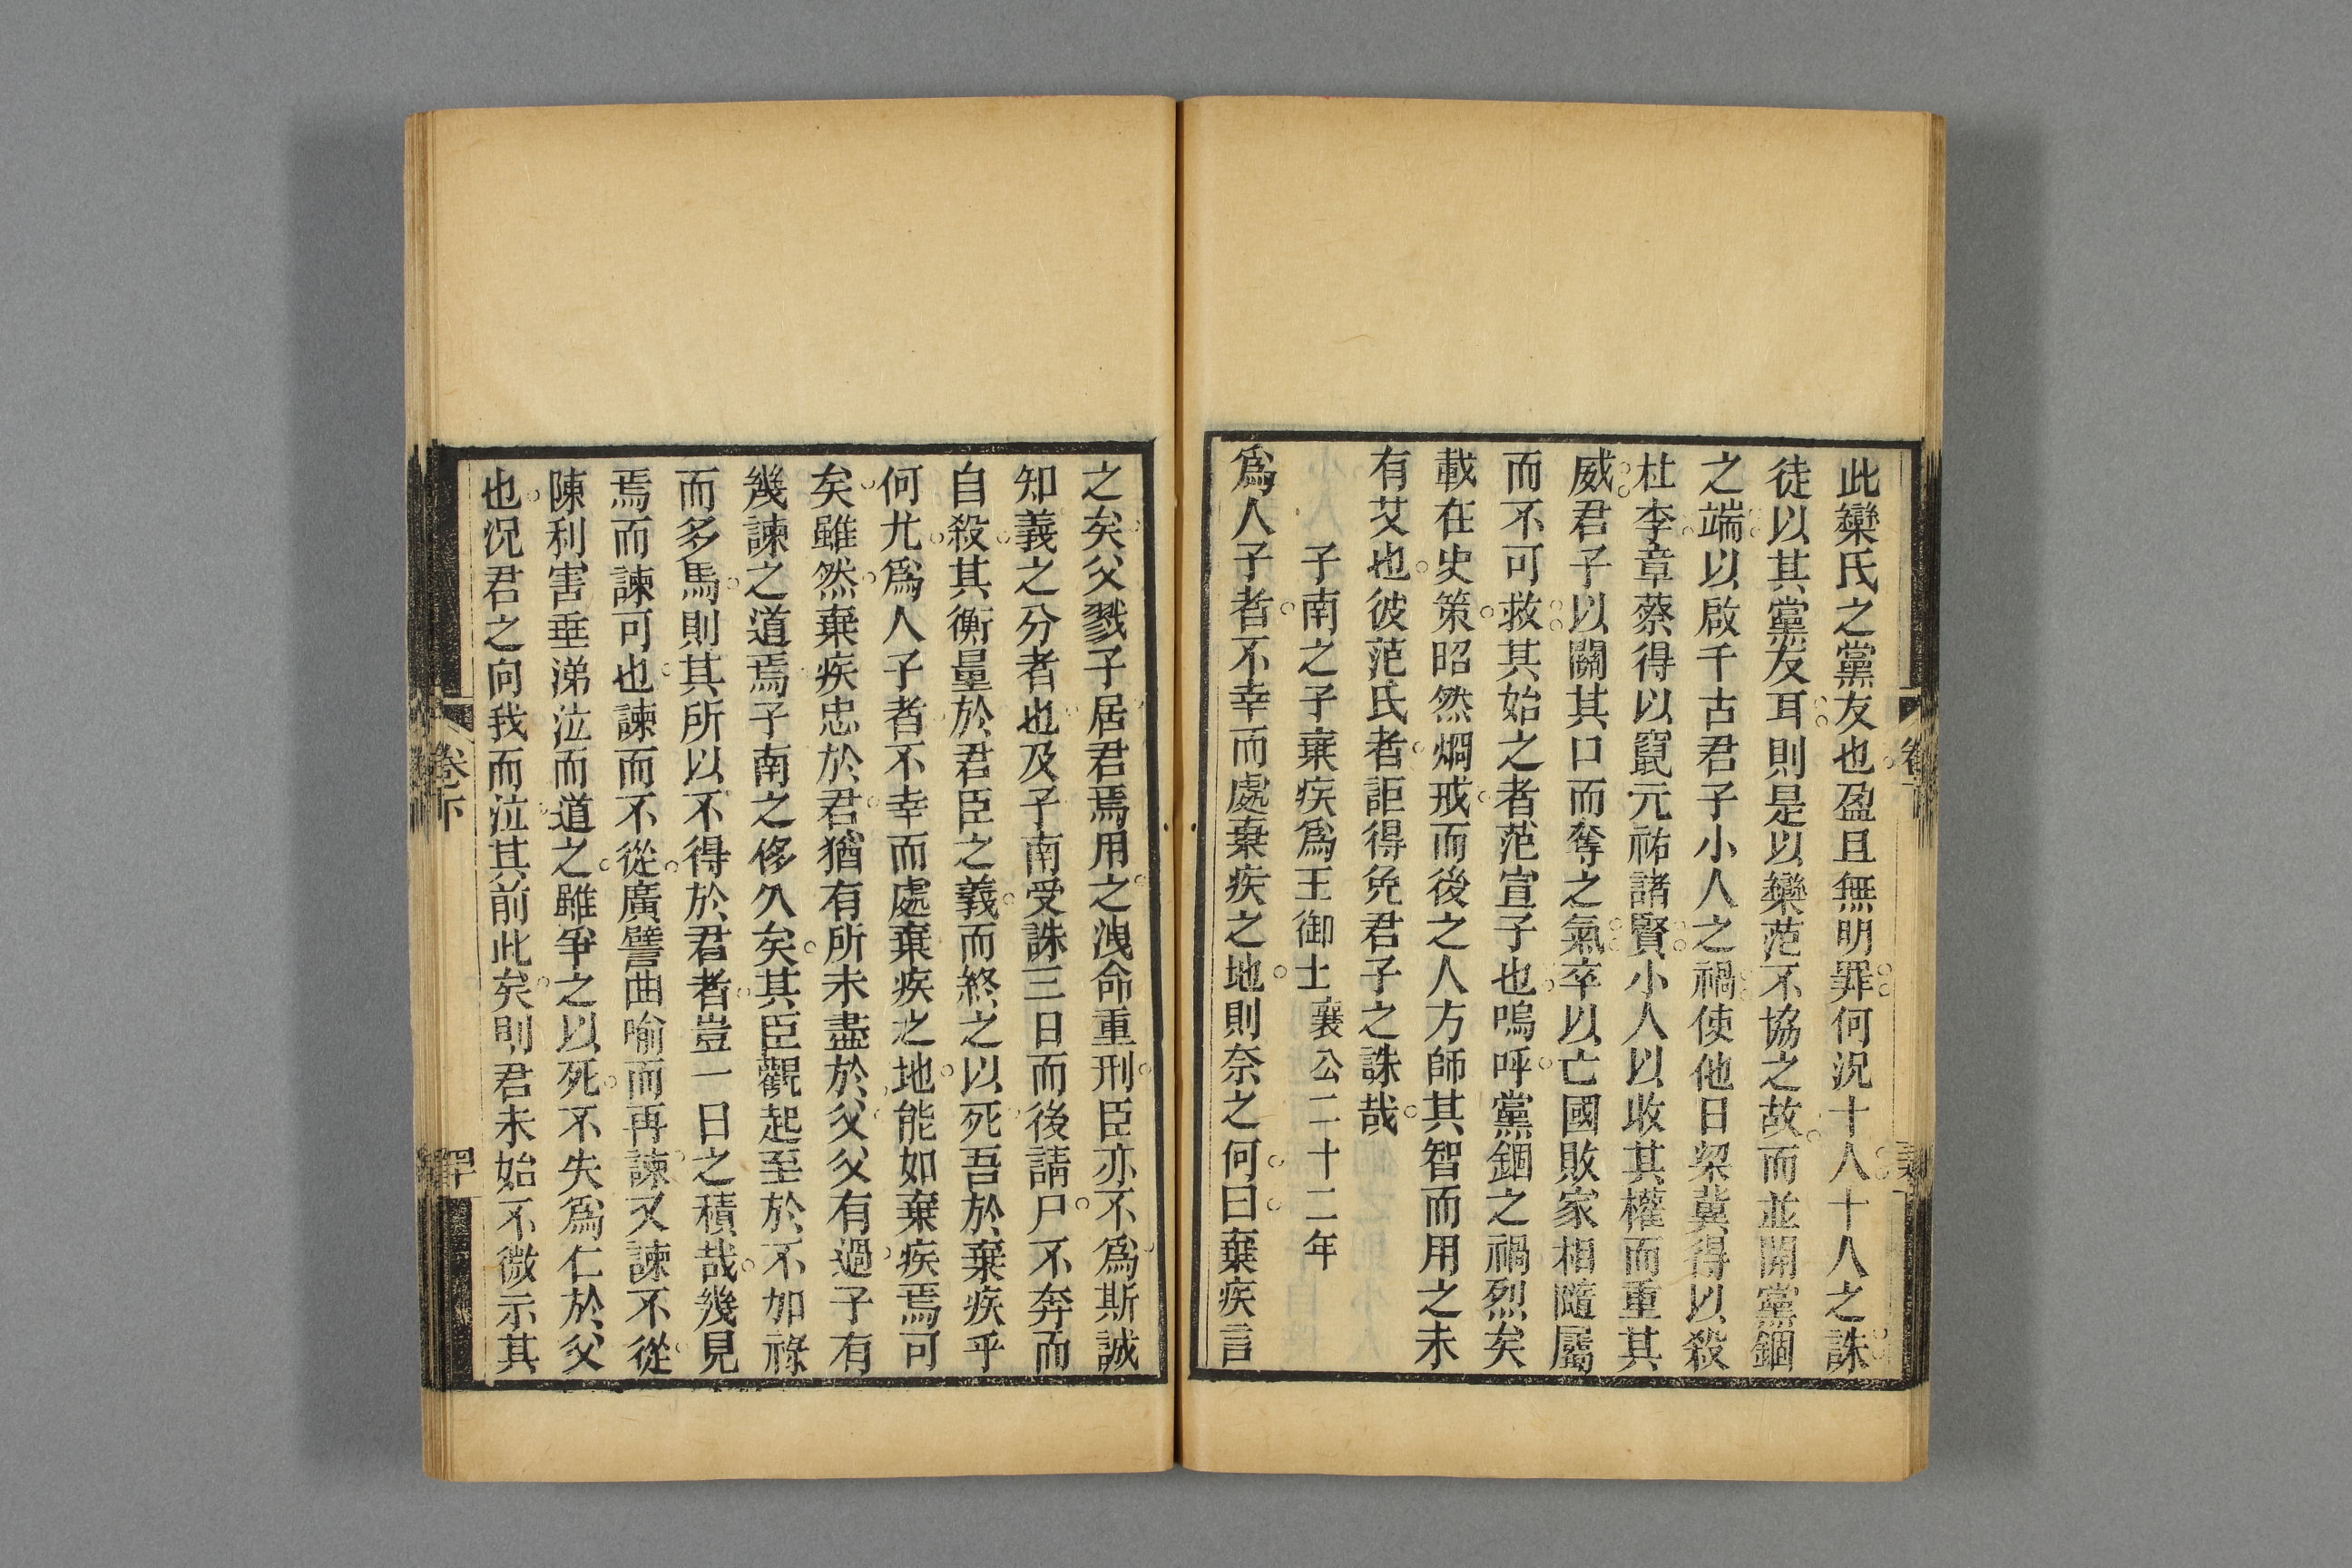 此欒氏之黨友也盈且無明罪何況十人十八之誅
徒以其黨友耳則是以欒范不協之故而並開黨錮
之端以啟千古君子小人之禍使他日梁冀得以殺
杜李章蔡得以竄元祐諸賢小人以收其權而重其
威君子以關其口而奪之氣卒以亡國敗家相隨屬
而不可救其始之者范宣子也嗚呼黨錮之禍烈矣
載在史策昭然烱戒而後之人方師其智而用之未
有艾也彼范氏者詎得免君子之誅哉
子南之子棄疾爲王御士襄公二十二年
爲人子者不幸而處棄疾之地則奈之何曰棄疾言
之矣父戮子居君焉用之洩命重刑臣亦不爲斯誠
知義之分者也及子南受誅三日而後請尸不奔而
自殺其衡量於君臣之義而終之以死吾於棄疾乎
何尤爲人子者不幸而處棄疾之地能如棄疾焉可
矣雖然棄疾忠於君猶有所未盡於父父有過子有
幾諫之道焉子南之侈久矣其臣觀起至於不加祿
而多馬則其所以不得於君者豈一日之積哉幾見
焉而諫可也諫而不從廣譬曲喻而再諫又諫不從
陳利害垂涕泣而道之雖爭之以死不失爲仁於父
也況君之向我而泣其前此矣則君未始不微示其
卷下